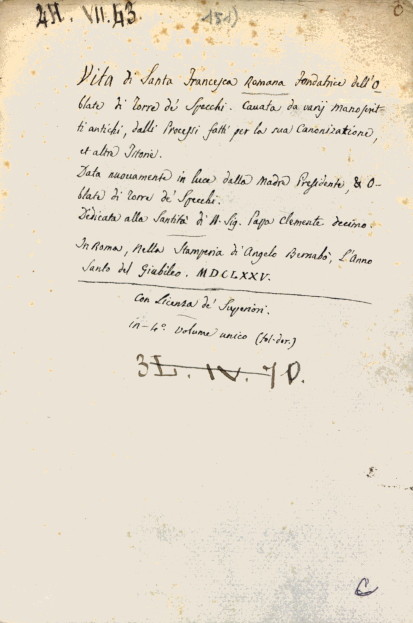 2H. VII. 63
151)
Vita di Santa Francesca Romana Fondatrice dell'O-
blate di Torre de' Specchi. Cavata da varij Manoscrit-
ti antichi, dalli Processi fatti per la sua Canonizatione,
et altre Istorie.
Data nuovamente in luce dalla Madre Presidente, & O-
blate di Torre de' Specchi.
Dedicata alla Santità di N. Sig. Papa Clemente decimo.
In Roma, Nella Stamperia di Angelo Bernabò, L'Anno
Santo del Giubileo. MDCLXXV.
Con Licenza de' Superiori.
in-4º. Volume unico (fol. dor.)